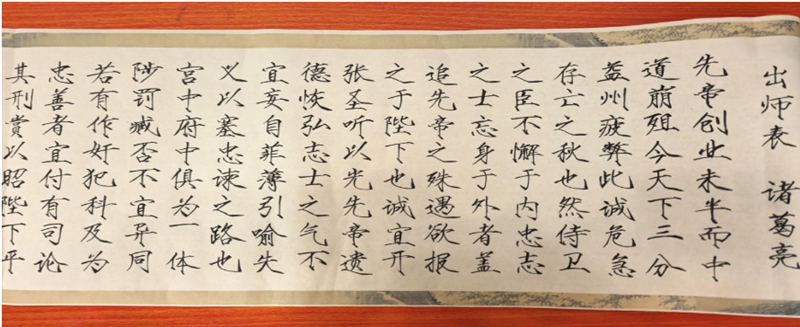 出师表 诸葛亮
先帝创业未半而中
道崩殂今天下三分
益州疲弊此诚危急
存亡之秋也然侍卫
之臣不懈于内忠志
之士忘身于外者盖
追先帝之殊遇欲报
之于陛下也诚宜开
张圣听以光先帝遗
德恢弘志士之气不
宜妄自菲薄引喻失
义以塞忠谏之路也
宫中府中俱为一体
陟罚臧否不宜异同
若有作奸犯科及为
忠善者宜付有司论
其刑赏以昭陛下平